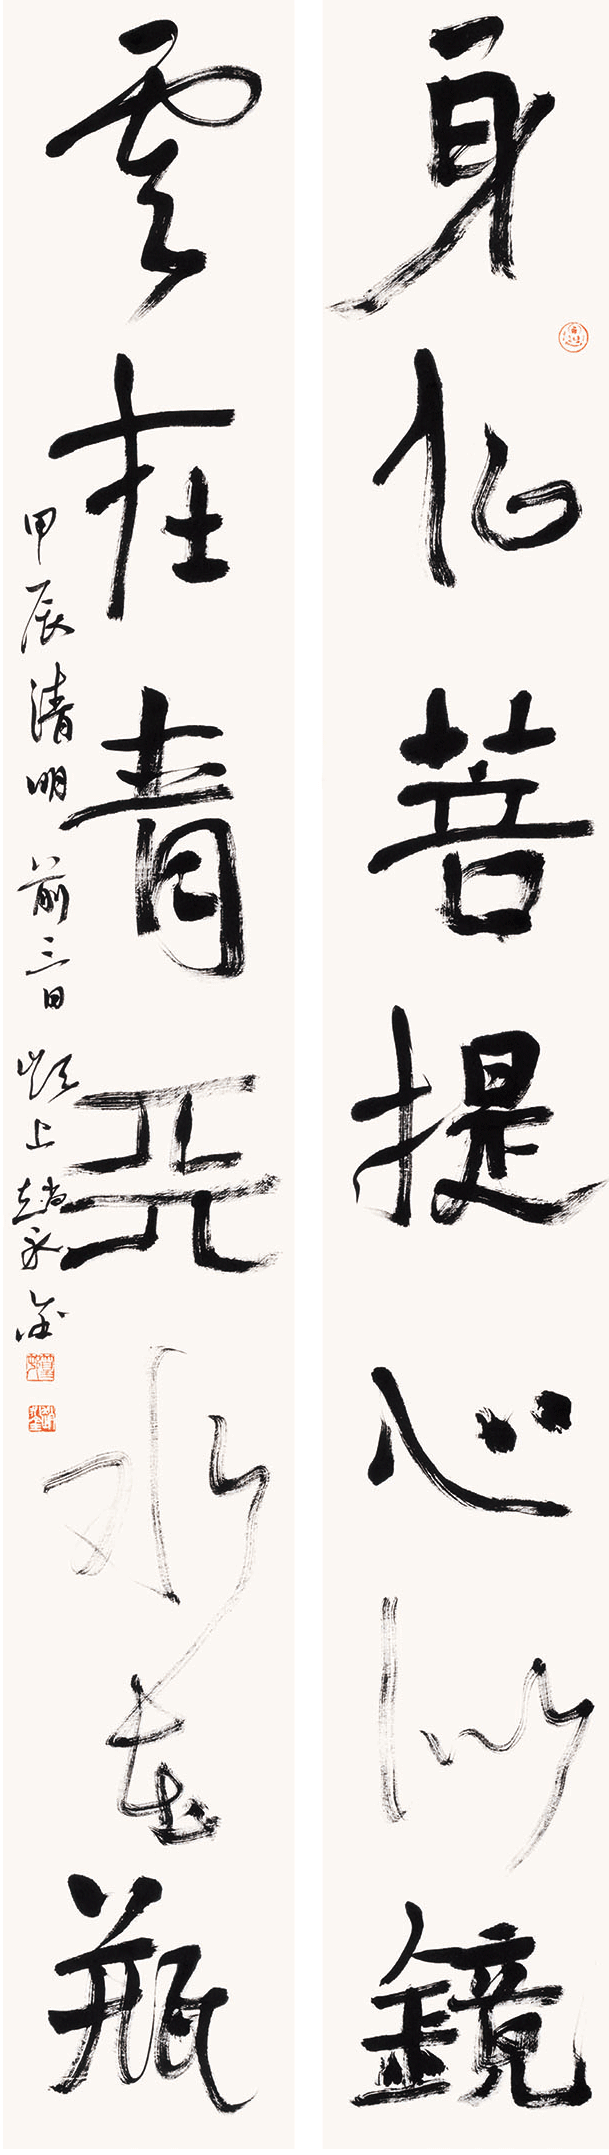 身似菩提心似鏡
雲在青天水在瓶
甲辰清明前三日潁上趙永金